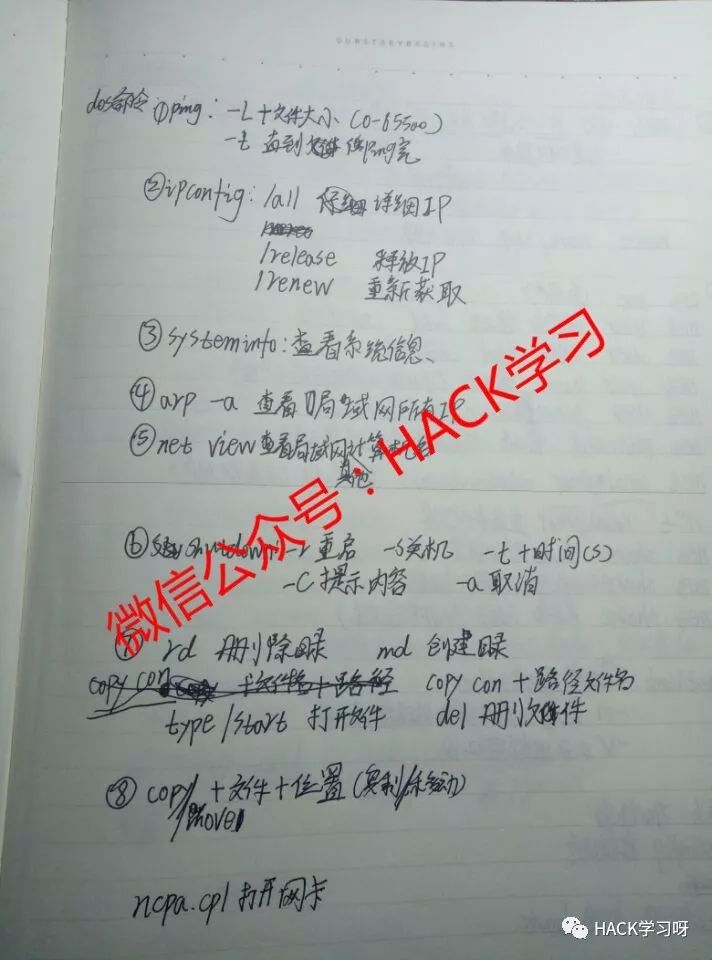 dos命令 ①ping: -L+文件大小 (0-65500)
-t 直到 ping完
②ipconfig: /all 详细IP
/release 释放IP
/renew 重新获取
③systeminfo: 查看系统信息、
④arp -a 查看 局域网所有IP
⑤net view 查看局域网计算机名
其他
⑥ shutdown: -r 重启 -s关机 -t+时间(s)
-C 提示内容 -a 取消
⑦ rd 删除目录 md 创建目录
copy con +文件名+路径 copy con +路径文件名
type /start 打开文件 del 删 文件
⑧ copy/ +文件+位置 (复制/移动)
/move
ncpa.cpl 打开网卡
微信公众号：HACK学习
HACK学习呀